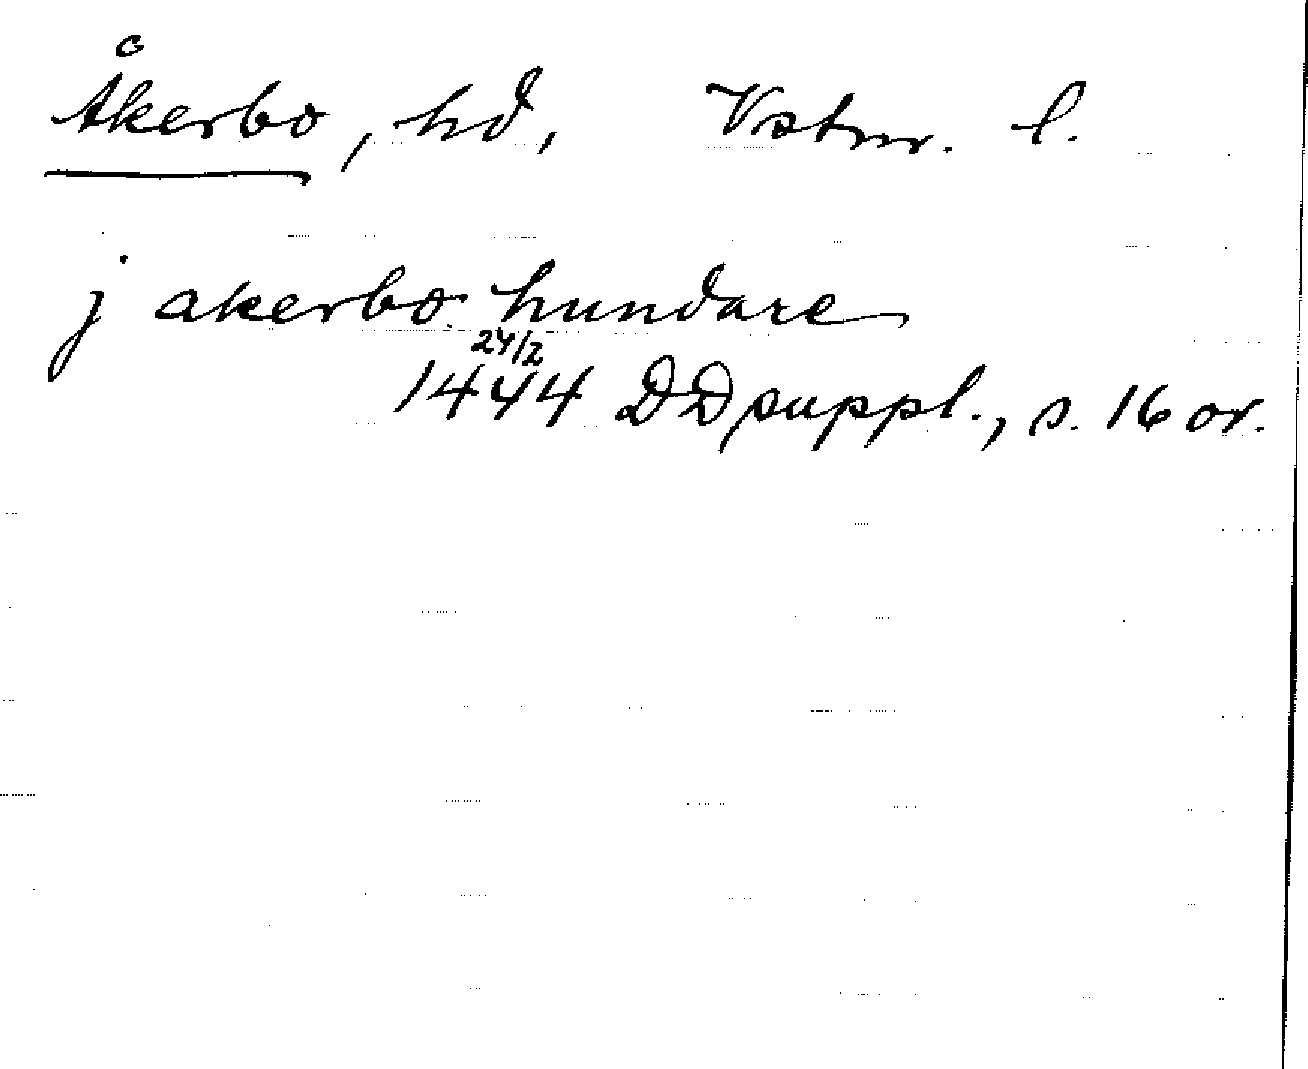 Åkerbo, hd, Vstm. l.
j akerbo hundare
24/2
1444 DD suppl., s. 16 or.